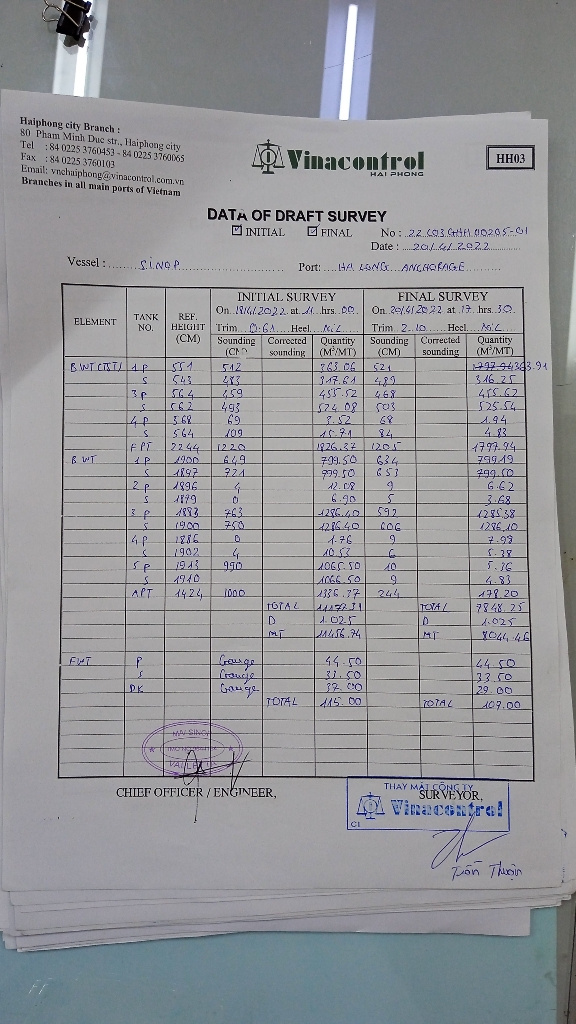 Haiphong city Branch :
80 Pham Minh Duc str., Haiphong city
Tel : 84 0225 3760453 - 84 0225 3760065
Fax : 84 0225 3760103
Email: vnchaiphong@vinacontrol.com.vn
Branches in all main ports of Vietnam
Vinacontrol
HAI PHONG
HH03
DATA OF DRAFT SURVEY
☑ INITIAL ☑ FINAL
No :
Date : 20/4/2022
Vessel : SINOP Port: HA LONG ANCHORAGE
ELEMENT TANK NO. REF. HEIGHT (CM) INITIAL SURVEY FINAL SURVEY
On 18/4/2022 at 11 hrs 00. On 20/4/2022 at 17 hrs 30
Trim 0.61 Heel NIL Trim 2.10 Heel NIL
Sounding (CM) Corrected sounding Quantity (M³/MT) Sounding (CM) Corrected sounding Quantity (M³/MT)
BWT(TST) 1P 551 512 363.06 521 363.91
S 543 483 317.61 489 316.25
3P 564 459 455.52 468 455.62
S 562 493 524.08 503 525.54
4P 568 69 3.52 68 1.94
S 564 109 15.71 84 4.83
FPT 2244 1220 1826.37 1205 1797.94
BWT 1P 1900 649 799.50 634 799.19
S 1897 721 799.50 653 799.50
2P 1896 4 12.08 9 6.62
S 1879 0 6.90 5 3.68
3P 1883 763 1286.40 592 1285.38
S 1900 750 1286.40 606 1286.10
4P 1886 0 1.76 9 7.98
S 1902 4 10.53 6 5.38
5P 1913 990 1065.50 10 5.36
S 1910 1066.50 9 4.83
APT 1424 1000 1336.37 244 178.20
TOTAL 11177.31 TOTAL 7848.25
D 1.025 D 1.025
MT 11456.74 MT 8044.46
FWT P Gauge 44.50 44.50
S Gauge 33.50 33.50
DK Gauge 37.00 29.00
TOTAL 115.00 TOTAL 107.00
M/V SINOP
CHIEF OFFICER / ENGINEER,
THAY MẶT CÔNG TY
SURVEYOR,
Vinacontrol
C1
Trần Thuận